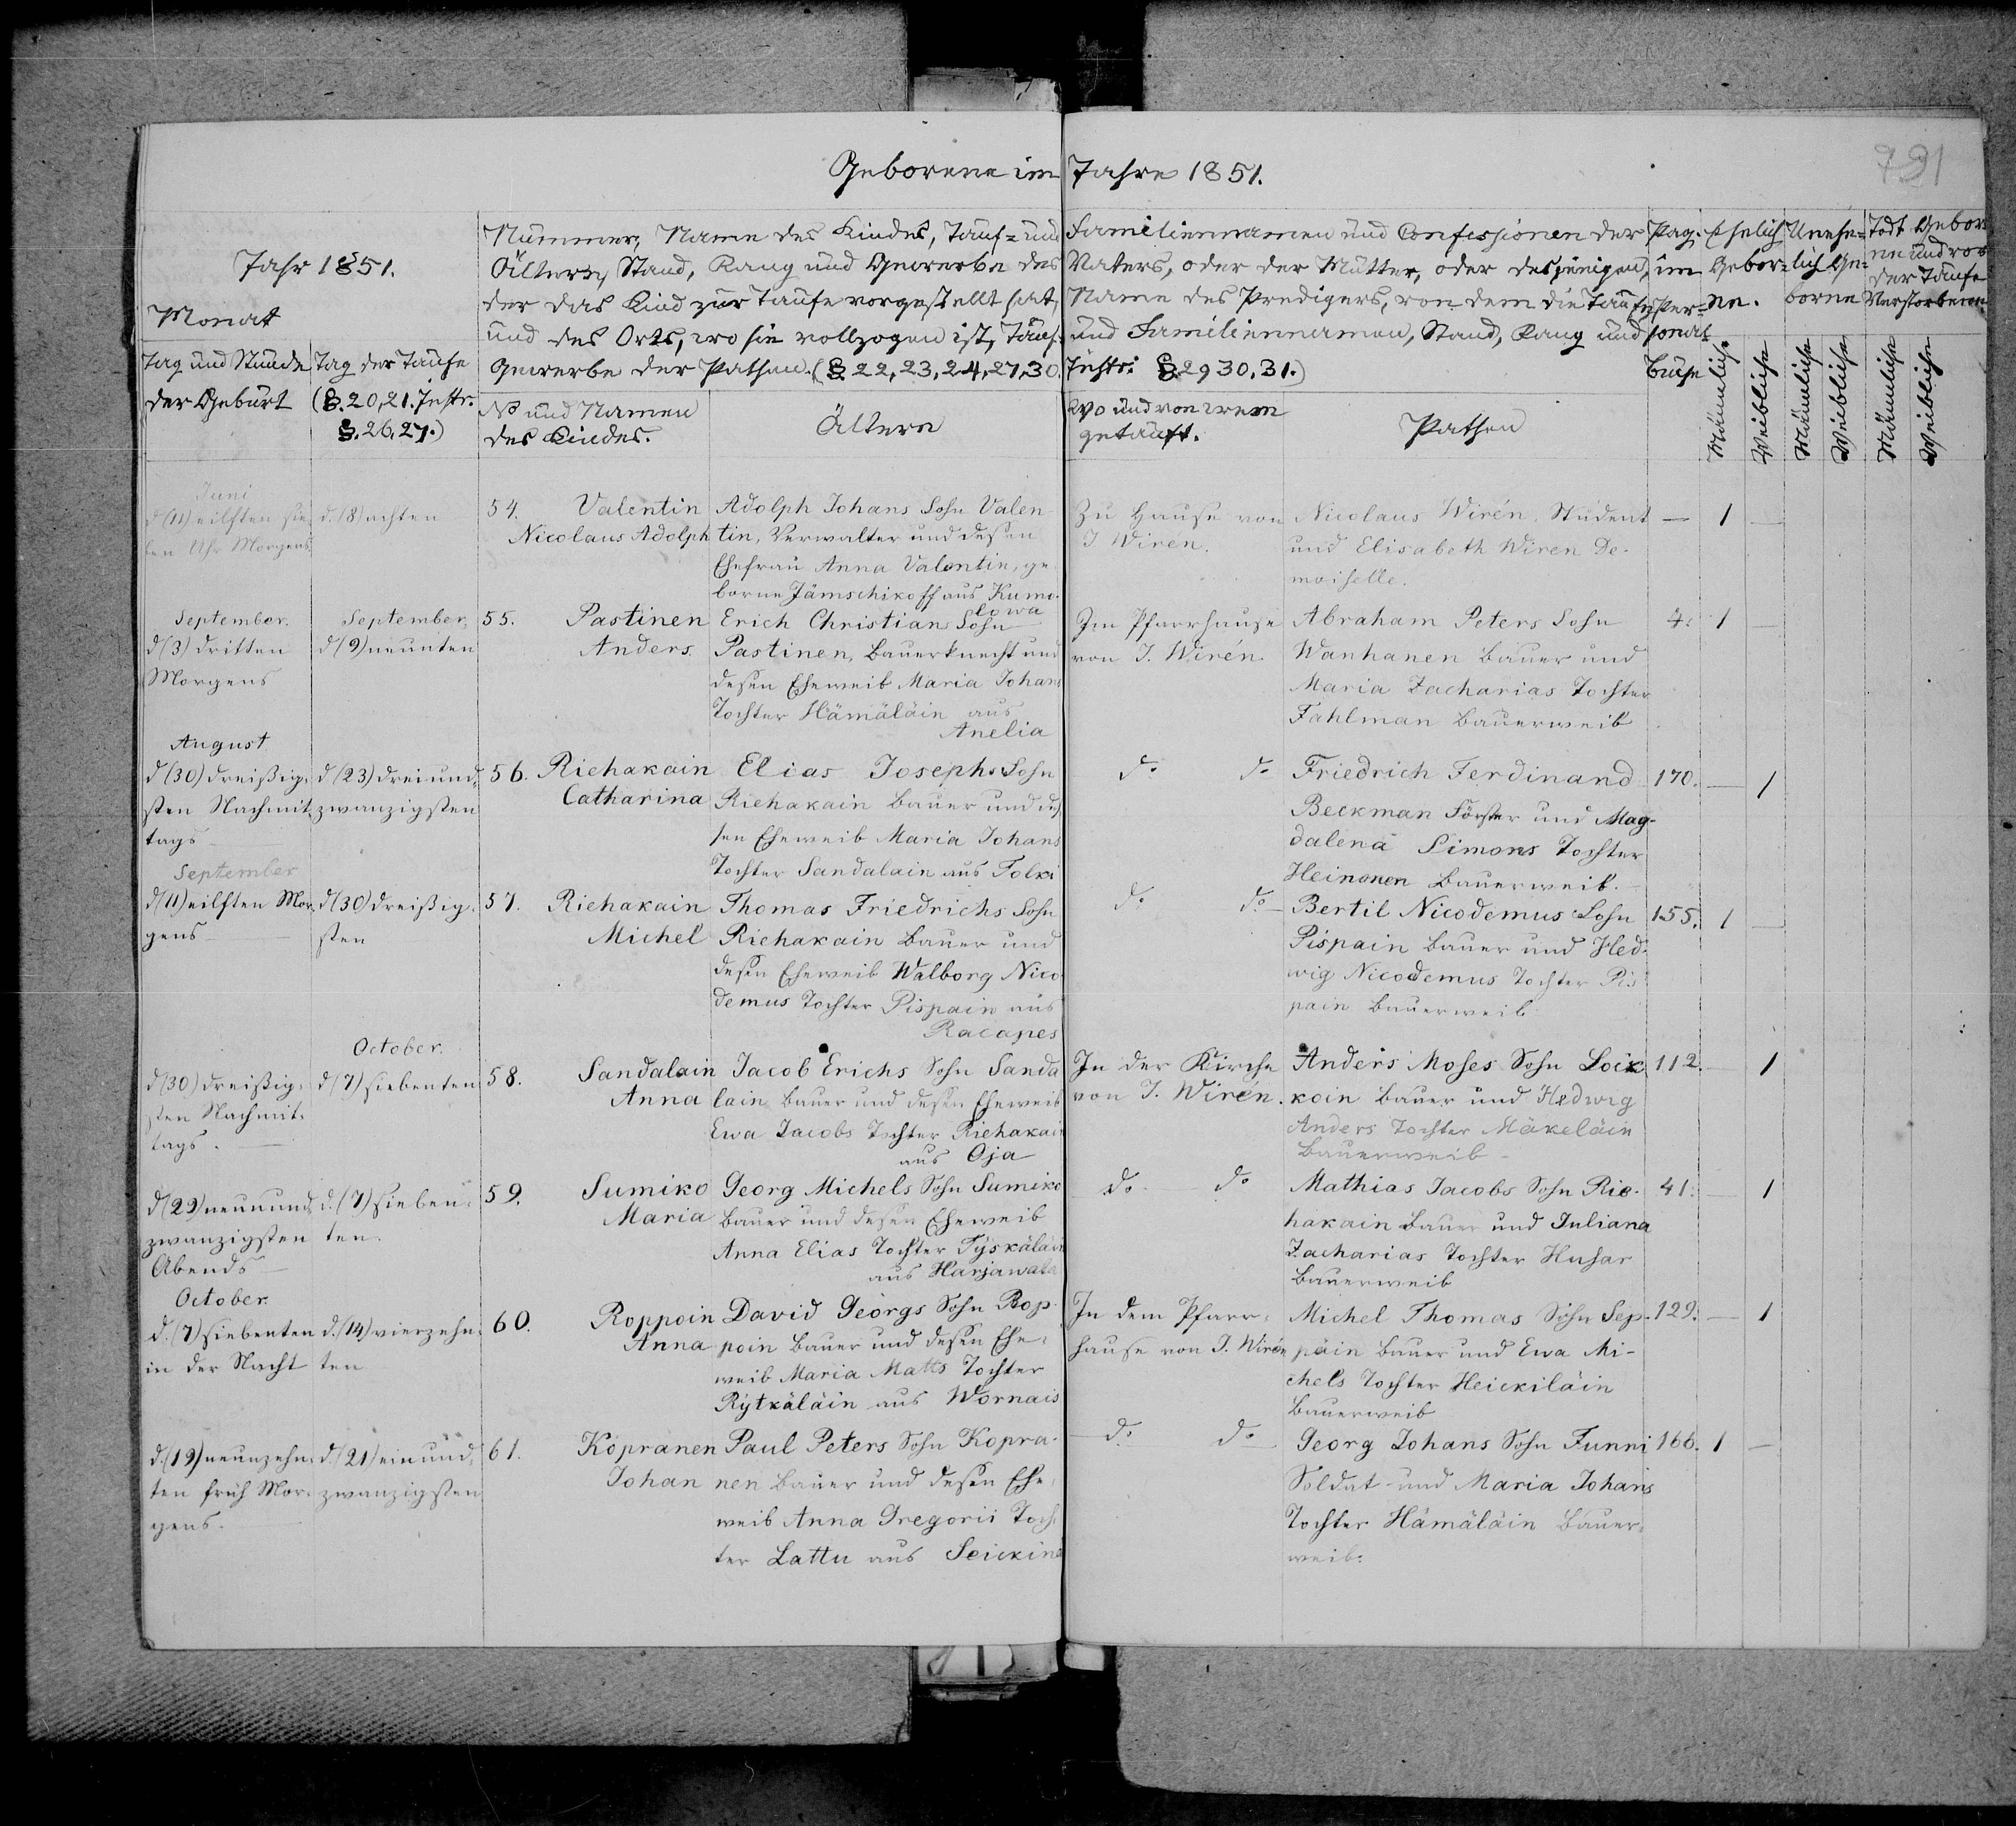 Geborene im Jahre 1851.
791
Jahr 1851.
Monat
Tag und Stunde
der Geburt
Tag der Taufe
(§. 20, 21. Instr.
§. 26, 27.)
Nummer, Name des Kindes, Tauf- und Familiennamen und Confessionen der
Ältern, Stand, Rang und Gewerbe des Vaters, oder der Mutter, oder desjenigen,
der das Kind zur Taufe vorgestellt hat, Name des Predigers, von dem die Taufe
und des Orts, wo sie vollzogen ist, Tauf- und Familiennamen, Stand, Rang und
Gewerbe der Pathen. (§. 22, 23, 24, 27, 30. Instr: §. 29 30. 31.)
No und Namen
des Kindes.
Ältern
Wo und von wem
getauft.
Pathen
Pag.
im
Per-
sonal-
buche
Ehelich
Gebor-
ne.
Unehe-
lich Ge-
borne
Todt Gebor-
ne und vor
der Taufe
Verstorbenen
Männliche
Weibliche
Männliche
Weibliche
Männliche
Weibliche
Juni
d (11) eilften sie-
ben Uhr Morgens
d. (8) achten
54. Valentin
Nicolaus Adolph
Adolph Johans Sohn Valen-
tin, Verwalter und dessen
Ehefrau Anna Valentin, ge-
borne Jämschikoff aus Kumo-
lowa
Zu Hause von
J Wirén.
Nicolaus Wirén, Student
und Elisabeth Wiren De-
moiselle.
— 1 —
September.
d (3) dritten
Morgens
September,
d (9) neunten
55. Pastinen
Anders
Erich Christian Sohn
Pastinen, Bauerknecht und
dessen Eheweib Maria Johans
Tochter Hämäläin aus
Anelia
Im Pfarrhause
von J. Wirén
Abraham Peters Sohn
Wanhanen Bauer und
Maria Zacharias Tochter
Fahlman Bauerweib
4. 1 —
August
d (30) dreißig-
sten Nachmit-
tags
d (23) dreiund-
zwanzigsten
56. Riehakain
Catharina
Elias Josephs Sohn
Riehakain Bauer und des-
sen Eheweib Maria Johans
Tochter Sandalain aus Tolki
do do
Friedrich Ferdinand
Beckman Förster und Mag-
dalena Simons Tochter
Heinonen Bauerweib.
170. — 1
September
d (11) eilften Mor-
gens
d (30) dreißig-
sten
57. Riehakain
Michel
Thomas Friedrichs Sohn
Riehakain Bauer und
dessen Eheweib Walborg Nico-
demus Tochter Pispain aus
Racapes
do do
Bertil Nicodemus Sohn
Pispain Bauer und Hed-
wig Nicodemus Tochter Pis-
pain Bauerweib
155. 1 —
d (30) dreißig-
sten Nachmit-
tags.
October.
d (7) siebenten
58. Sandalain
Anna
Jacob Erichs Sohn Sanda
lain Bauer und dessen Eheweib
Ewa Jacobs Tochter Riehakain
aus Oja
In der Kirche
von J. Wirén.
Anders Moses Sohn Lock-
koin Bauer und Hedwig
Anders Tochter Mäkeläin
Bauerweib
112. — 1
d (29) neunund-
zwanzigsten
Abends
d. (7) sieben-
ten.
59. Sumiko
Maria
Georg Michels Sohn Sumiko
Bauer und dessen Eheweib
Anna Elias Tochter Tyskäläin
aus Harjawala
do do
Mathias Jacobs Sohn Rie-
hakain Bauer und Juliana
Zacharias Tochter Husar
Bauerweib
41. — 1
October.
d. (7) siebenten
in der Nacht
d. (14) vierzehn-
ten
60. Roppoin
Anna
David Georgs Sohn Rop-
poin Bauer und dessen Ehe-
weib Maria Matts Tochter
Rytkäläin aus Wornais
In dem Pfarr-
hause von J. Wirén
Michel Thomas Sohn Sep-
päin Bauer und Ewa Mi-
chels Tochter Heickiläin
Bauerweib
129. — 1
d. (19) neunzehn-
ten früh Mor-
gens.
d. (21) einund-
zwanzigsten
61. Kopranen
Johan
Paul Peters Sohn Kopra-
nen Bauer und dessen Ehe-
weib Anna Gregorii Toch-
ter Lattu aus Seickina
do do
Georg Johans Sohn Funni
Soldat und Maria Johans
Tochter Hämäläin Bauer-
weib.
166. 1 —